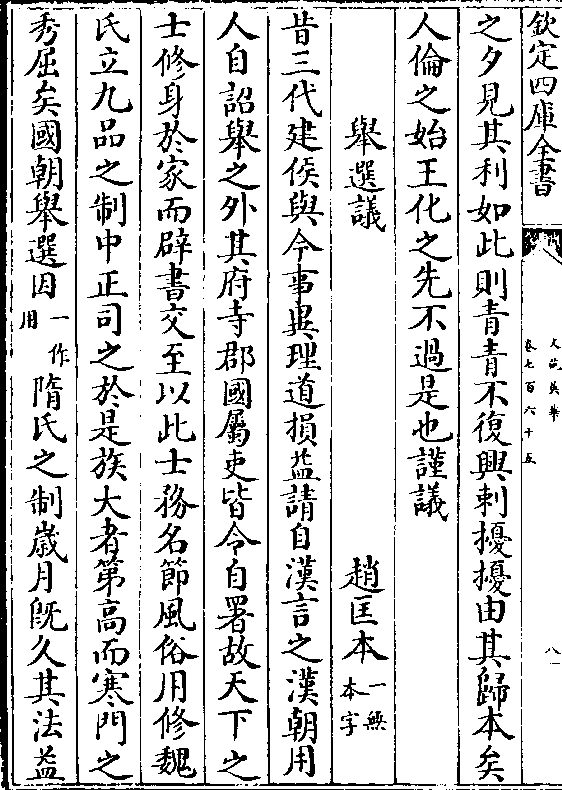 欽定四庫全書
文苑英華
卷七百六十五
八
之夕見其利如此則青青不復興刺擾擾由其歸本矣
人倫之始王化之先不過是也謹議
舉選議
趙匡本一無本字
昔三代建侯與今事異理道損益請自漢言之漢朝用
人自詔舉之外其府寺郡國屬吏皆令自署故天下之
士修身於家而辟書交至以此士務名節風俗用修魏
氏立九品之制中正司之於是族大者第高而寒門之
秀屈矣國朝舉選因一作用隋氏之制歳月既久其法益